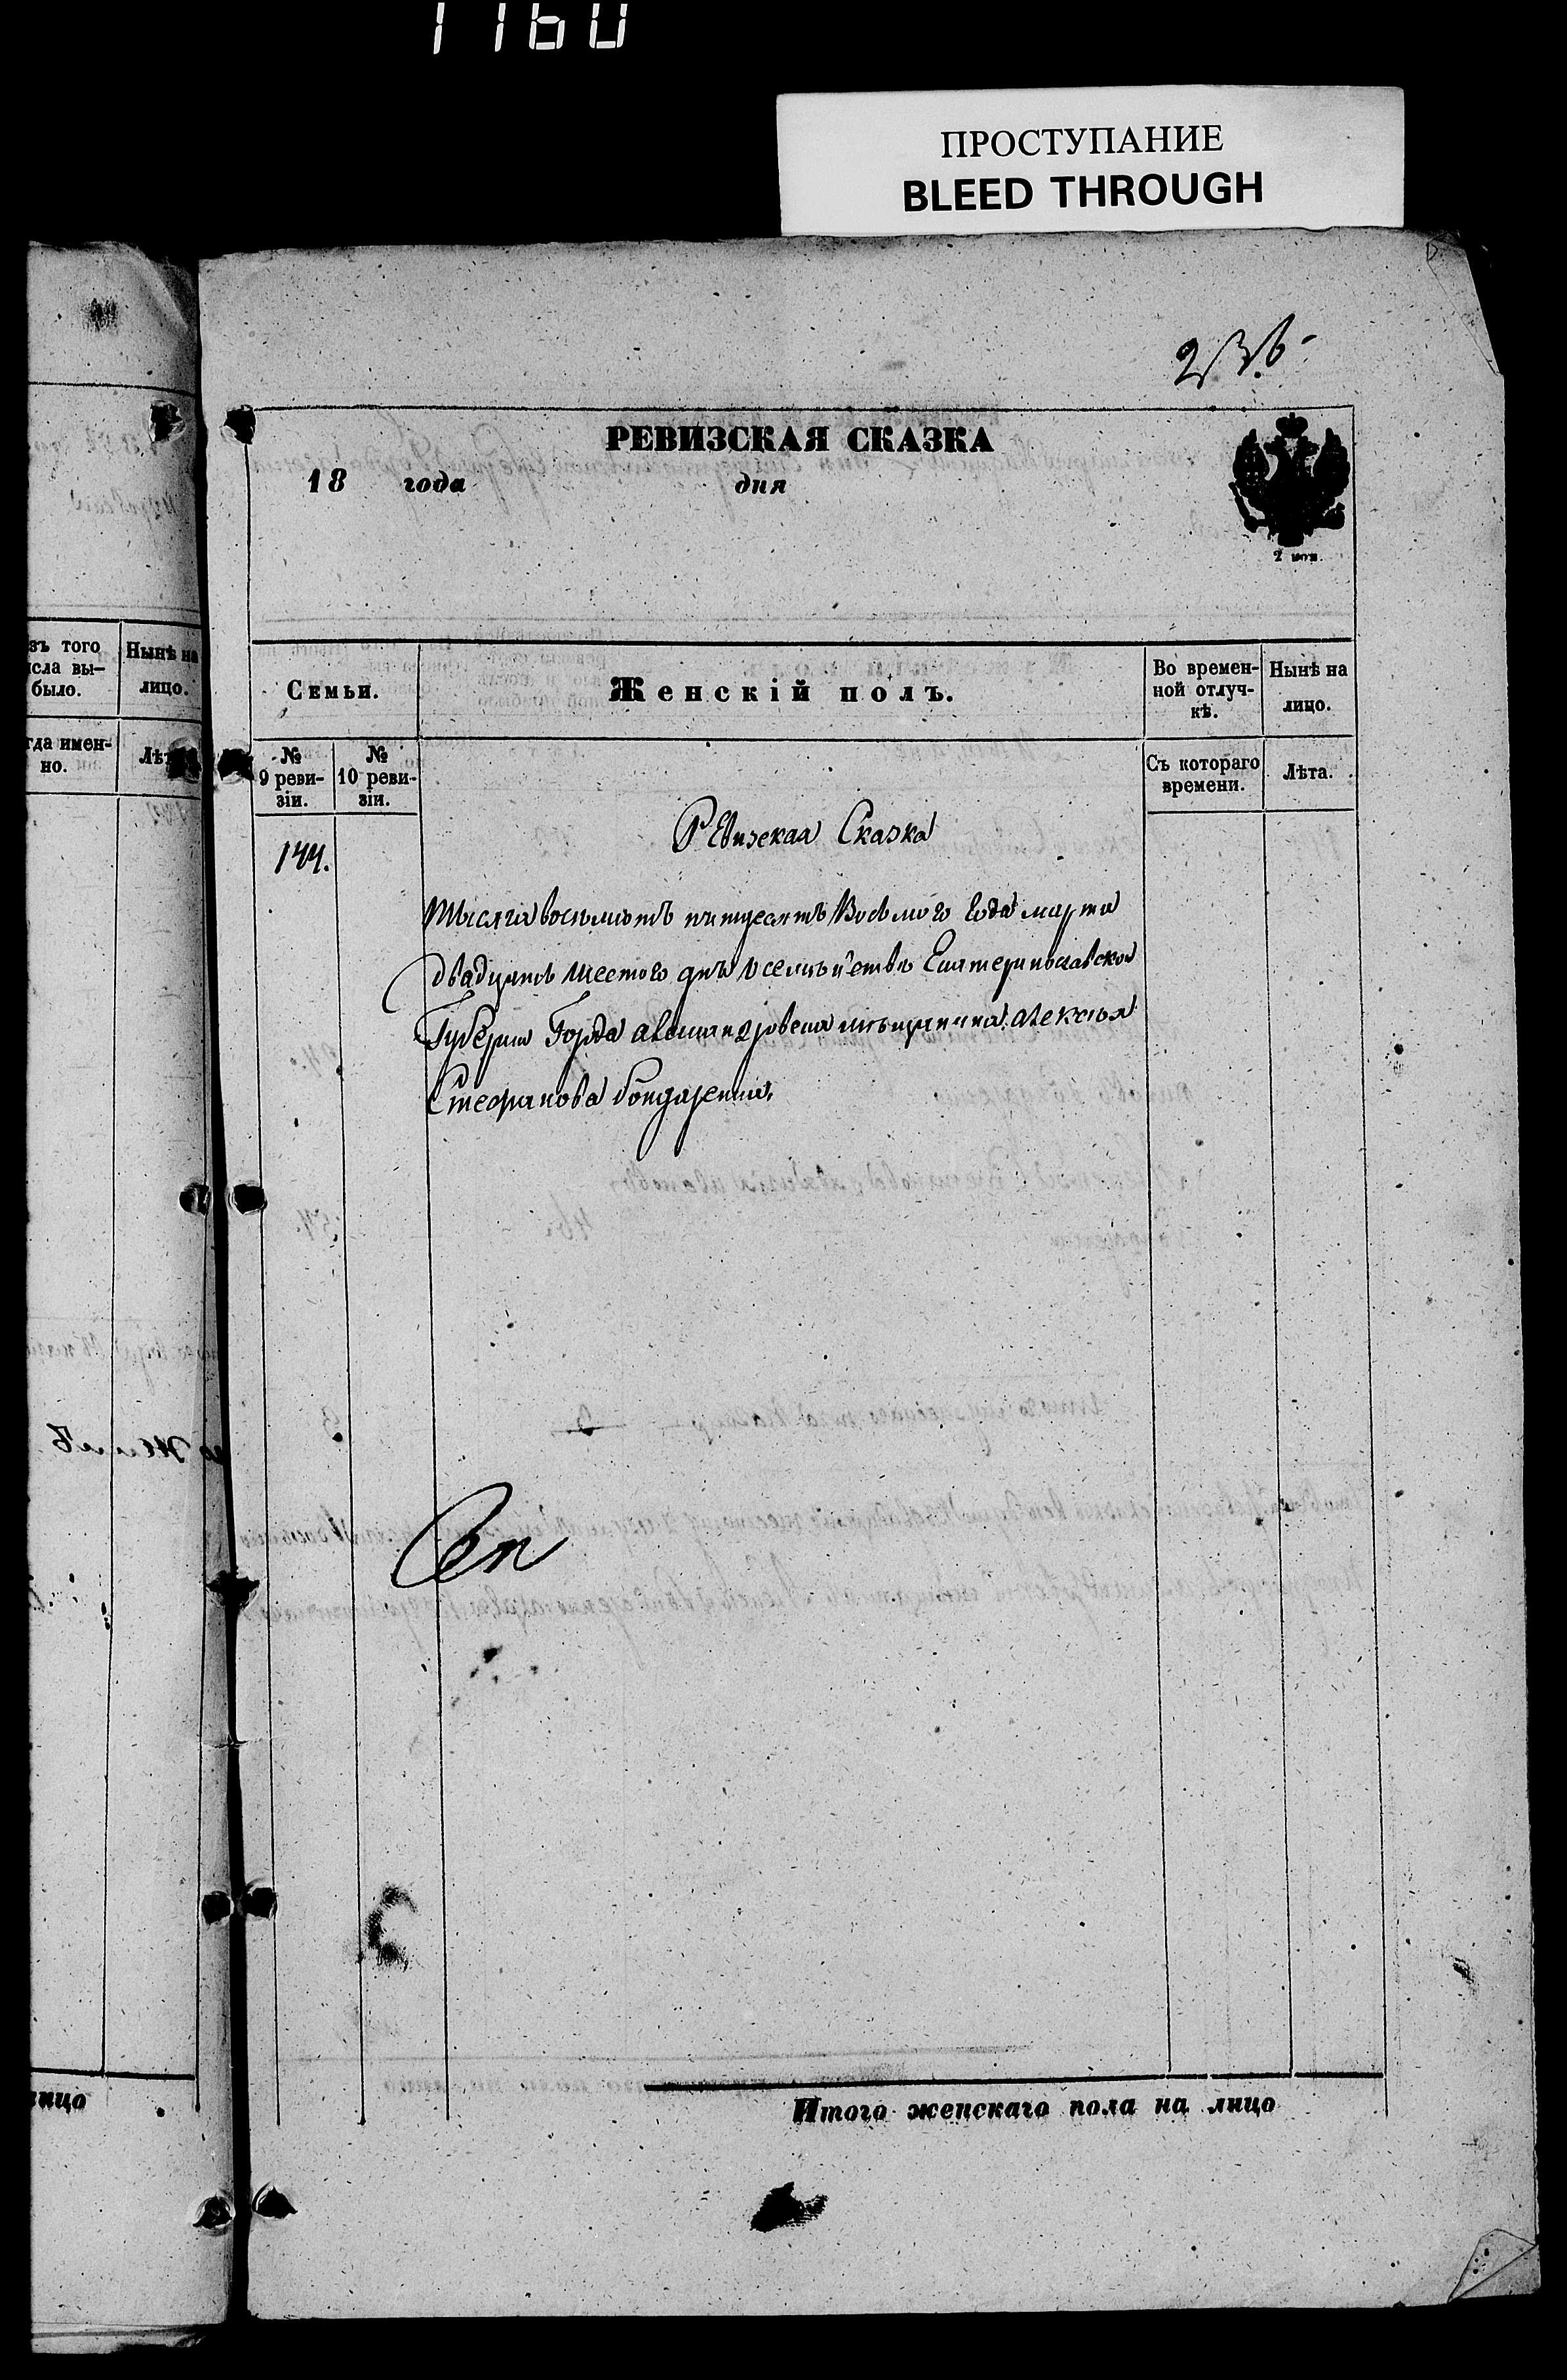 1160
ПРОСТУПАНИЕ
BLEED THROUGH
236
РЕВИЗСКАЯ СКАЗКА
18 года дня
2 коп.
зъ того
исла вы-
было.
Нынѣ на
лицо.
гда имен-
но.
Лѣт
Семьи.
Женскій полъ.
Во времен-
ной отлуч-
кѣ.
Нынѣ на
лицо.
№
9 реви-
зіи.
№
10 реви-
зіи.
Съ котораго
времени.
Лѣта.
Ревизская Сказка
144.
тысяча восемьсотъ пятдесятъ Восьмого Года марта
двадцать шестого дня Екатеринославской
Губернии Города александровска мѣщанина алексѣя
Стефанова бондаренка.
лицо
Итого женскаго пола на лицо